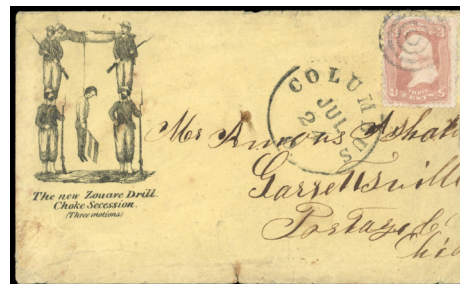 The new Zouave Drill.
Choke Secession.
(Three motions)
COLUMBUS
JUL
2
U S
Mr Amous
Garrettsville
Portage Co
Ohio